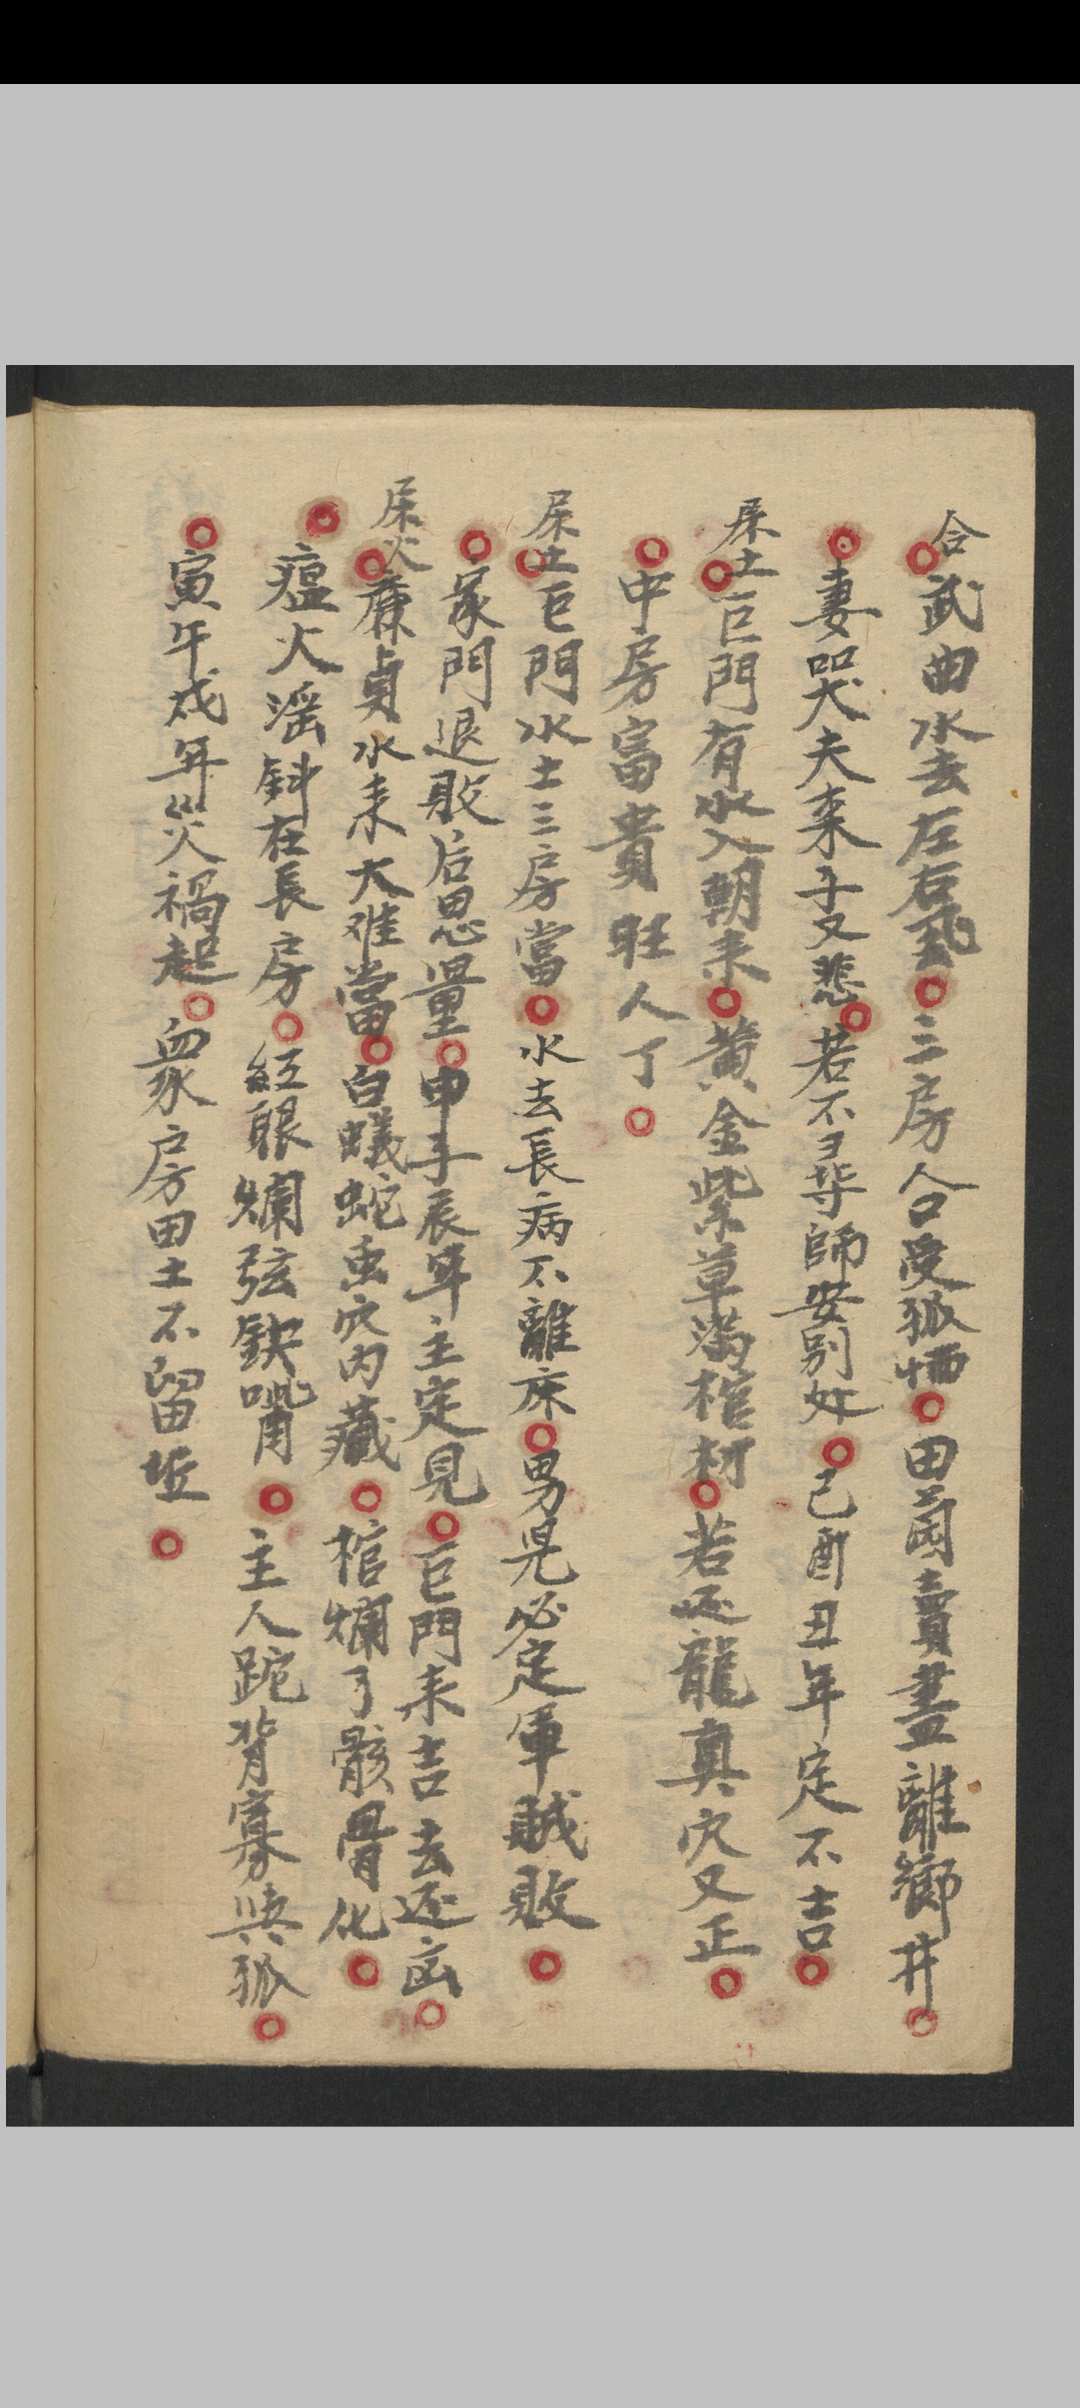 合武曲水去左右飛○三房人口受孤恓○田啚賣盡離鄉井○
○妻哭夫來子又悲○若不尋師安別処○己酉丑年定不吉○
屎土○巨門有水入朝来○黃金紫草滿棺材○若还龍真穴又正○
○中房富貴旺人丁○
屎土○巨門水土三房當○水去長病不離床○男兒必定軍賊敗○
○家門退敗后思量○申子辰年主定見○巨門来吉去还凶○
屎火○廉貞水来大难當○白蟻蛇虫穴内藏○棺爛了骸骨化○
○瘟火滛斜在長房○紅眼爛弦缺嘴○主人跎背寡與孤○
○寅午戌年災禍起○眾房田土不留坵○